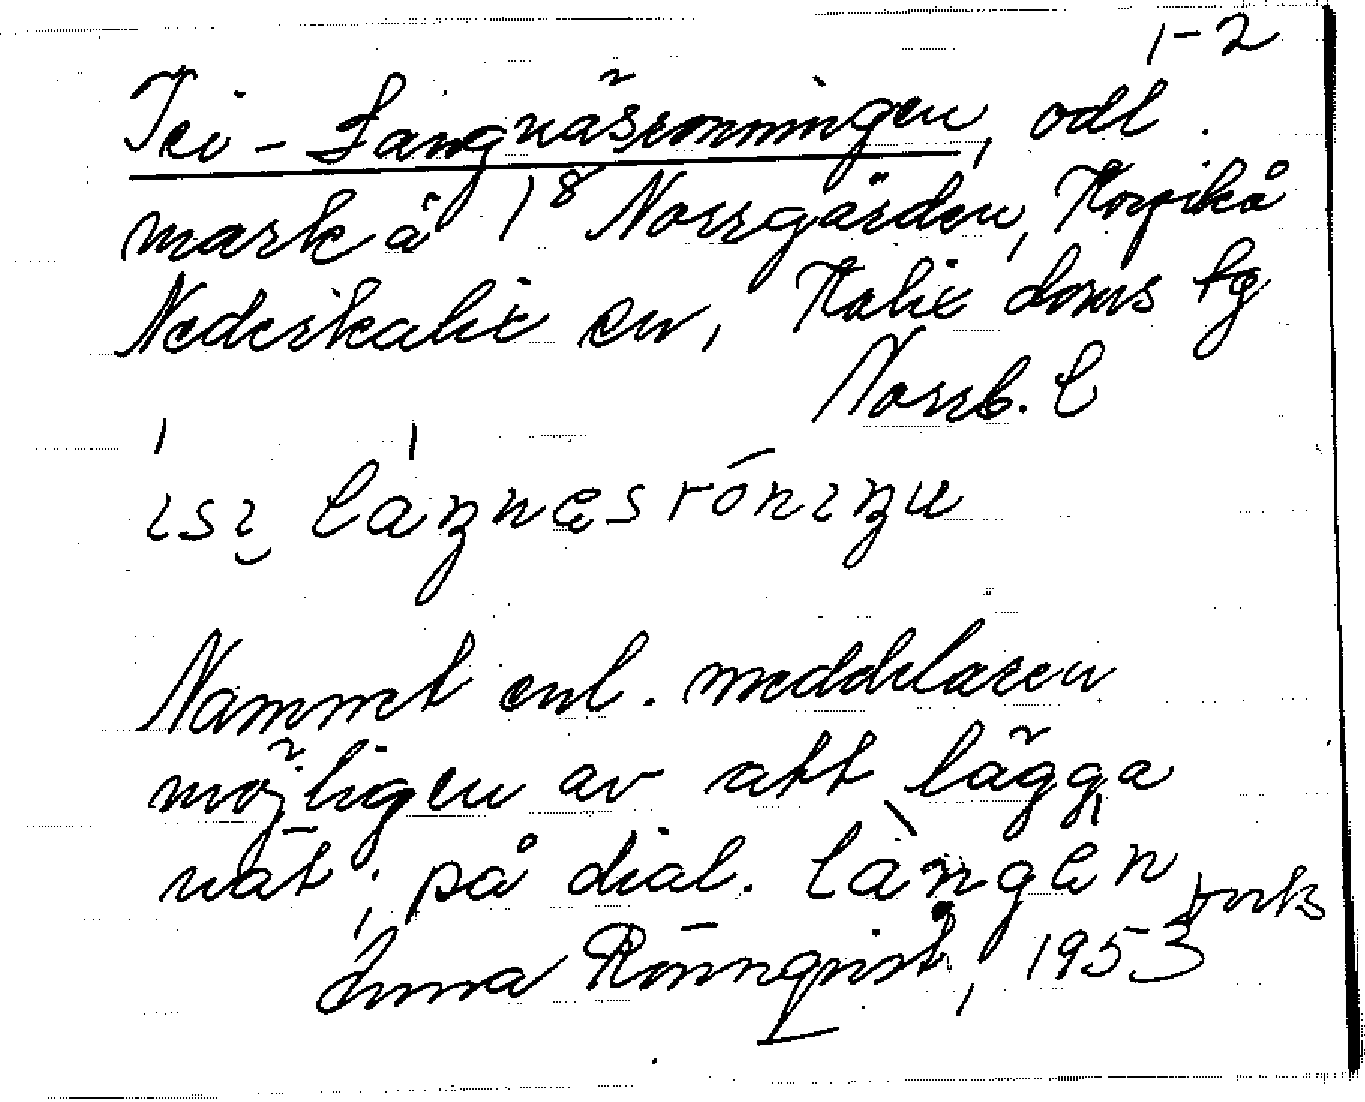 1-2
Isi-Langnäsrönningen, odl.
mark å 1⁸ Norrgården, Korpikå
Nederkalix sn, Kalix doms tg
Norrb. l
isi láŋnæsróniŋu
Namnet enl. meddelaren
möjligen av att lägga
nät; på dial.
Rönnqvist, 1953